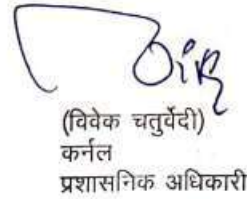 (विवेक चतुर्वेदी)
कर्नल
प्रशासनिक अधिकारी